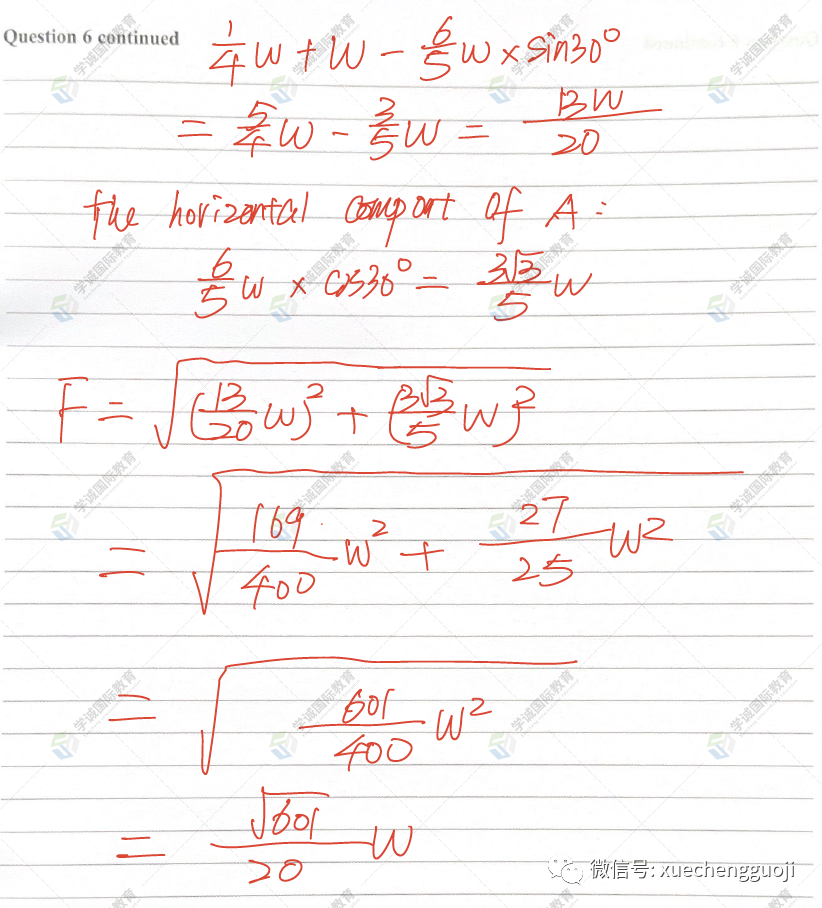 Question 6 continued
1/4 W + W - 6/5 W × sin30°
= 5/4 W - 3/5 W = 13W/20
the horizontal compont of A :
6/5 W × cos30° = 3√3/5 W
F = √((13/20 W)² + (3√3/5 W)²)
= √(169/400 W² + 27/25 W²)
= √(601/400 W²)
= √601/20 W
微信号: xuechengguoji
学诚国际教育